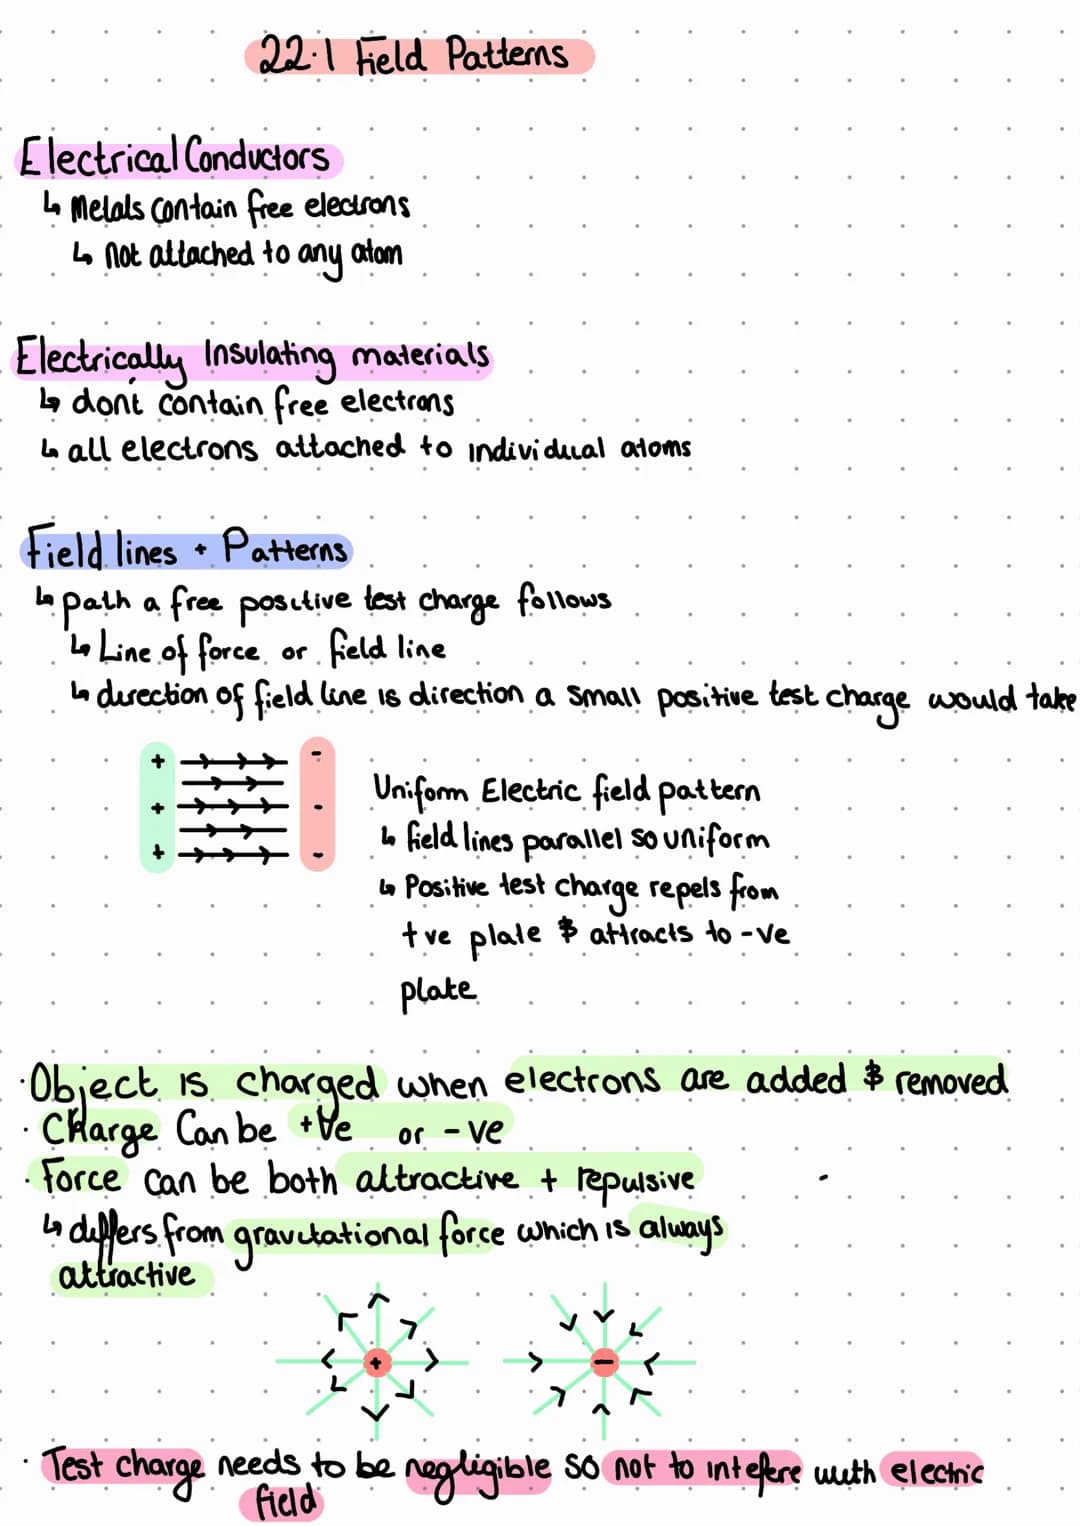 22.1 Field Patterns
Electrical Conductors
↳ Metals contain free electrons
↳ not attached to any atom
Electrically Insulating materials
↳ don't contain free electrons
↳ all electrons attached to individual atoms
Field lines + Patterns
↳ path a free positive test charge follows
↳ Line of force or field line
↳ direction of field line is direction a small positive test charge would take
+ -
+ -
+ -
Uniform Electric field pattern
↳ field lines parallel so uniform
↳ Positive test charge repels from
+ve plate & attracts to -ve
plate
· Object is charged when electrons are added & removed
· Charge Can be +ve or -ve
· Force can be both attractive + repulsive
↳ differs from gravitational force which is always
attractive
+ -
· Test charge needs to be negligible so not to intefere with electric
field